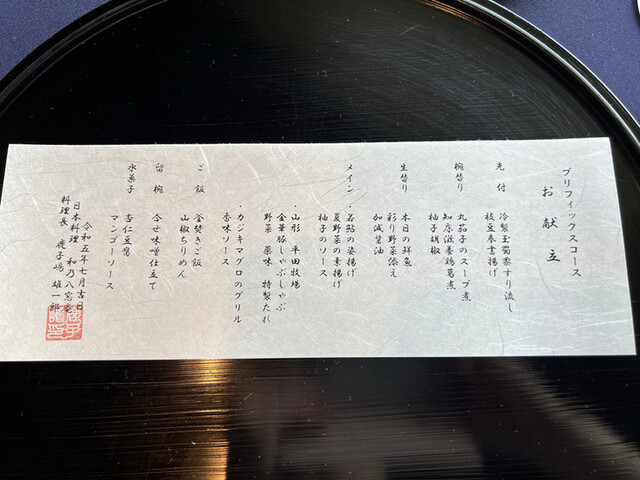 プリフィックスコース
お献立
先付 冷製玉蜀黍すり流し
枝豆奉書揚げ
椀替り 丸茄子のスープ煮
知床滋養鶏葛煮
柚子胡椒
生替り 本日の鮮魚
彩り野菜添え
加減醤油
メイン ・若鮎の姿揚げ
夏野菜の素揚げ
柚子のソース
・山形 平田牧場
金華豚しゃぶしゃぶ
野菜 薬味 特製だれ
・カジキマグロのグリル
香味ソース
ご飯 釜焚きご飯
山椒ちりめん
留椀 合せ味噌仕立て
水菓子 杏仁豆腐
マンゴーソース
令和五年七月吉日
日本料理 和乃八窓庵
料理長 鹿子嶋 雄一郎